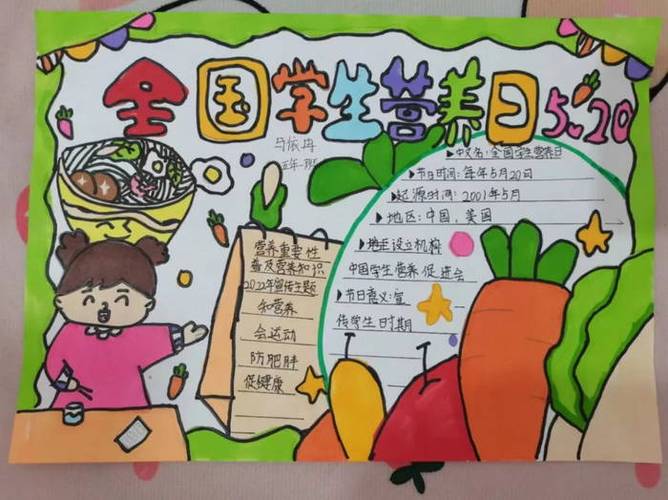 全国学生营养日5.20
马依冉
五年一班
营养重要性
普及营养知识
2022年宣传主题
知营养
会运动
防肥胖
促健康
▶中文名:全国学生营养日
▶节日时间:每年5月20日
▶起源时间:2001年5月
▶地区:中国、美国
设立机构
中国学生营养促进会
▶节日意义:宣
传学生时期